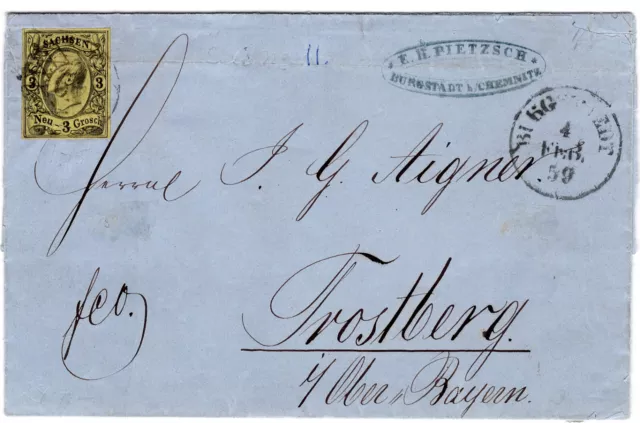 SACHSEN
3 3
Neu - 3 Grosch
11.
* E. R. PIETZSCH *
BURGSTÄDT b/CHEMNITZ
4
FEB.
59
Herrn J. G. Aigner.
fco.
Trostberg.
i/ Ober-Bayern.